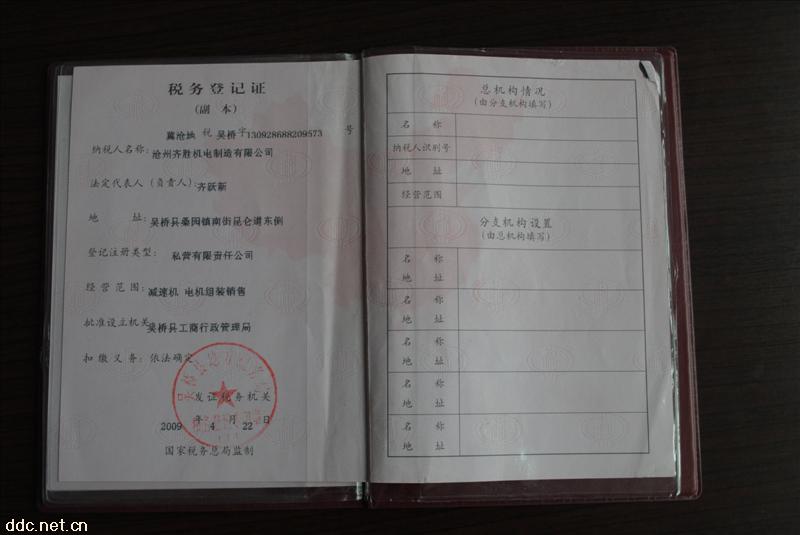 税务登记证
(副 本)
冀沧地 税 吴桥 字130928688209573 号
纳税人名称: 沧州齐胜机电制造有限公司
法定代表人 (负责人): 齐跃新
地 址: 吴桥县桑园镇南街昆仑道东侧
登记注册类型: 私营有限责任公司
经营范围: 减速机 电机组装销售
批准设立机关: 吴桥县工商行政管理局
扣缴义务: 依法确定
发证税务机关
2009 年 4 月 22 日
国家税务总局监制
总机构情况
(由分支机构填写)
名 称
纳税人识别号
地 址
经营范围
分支机构设置
(由总机构填写)
名 称
地 址
名 称
地 址
名 称
地 址
名 称
地 址
名 称
地 址
ddc.net.cn